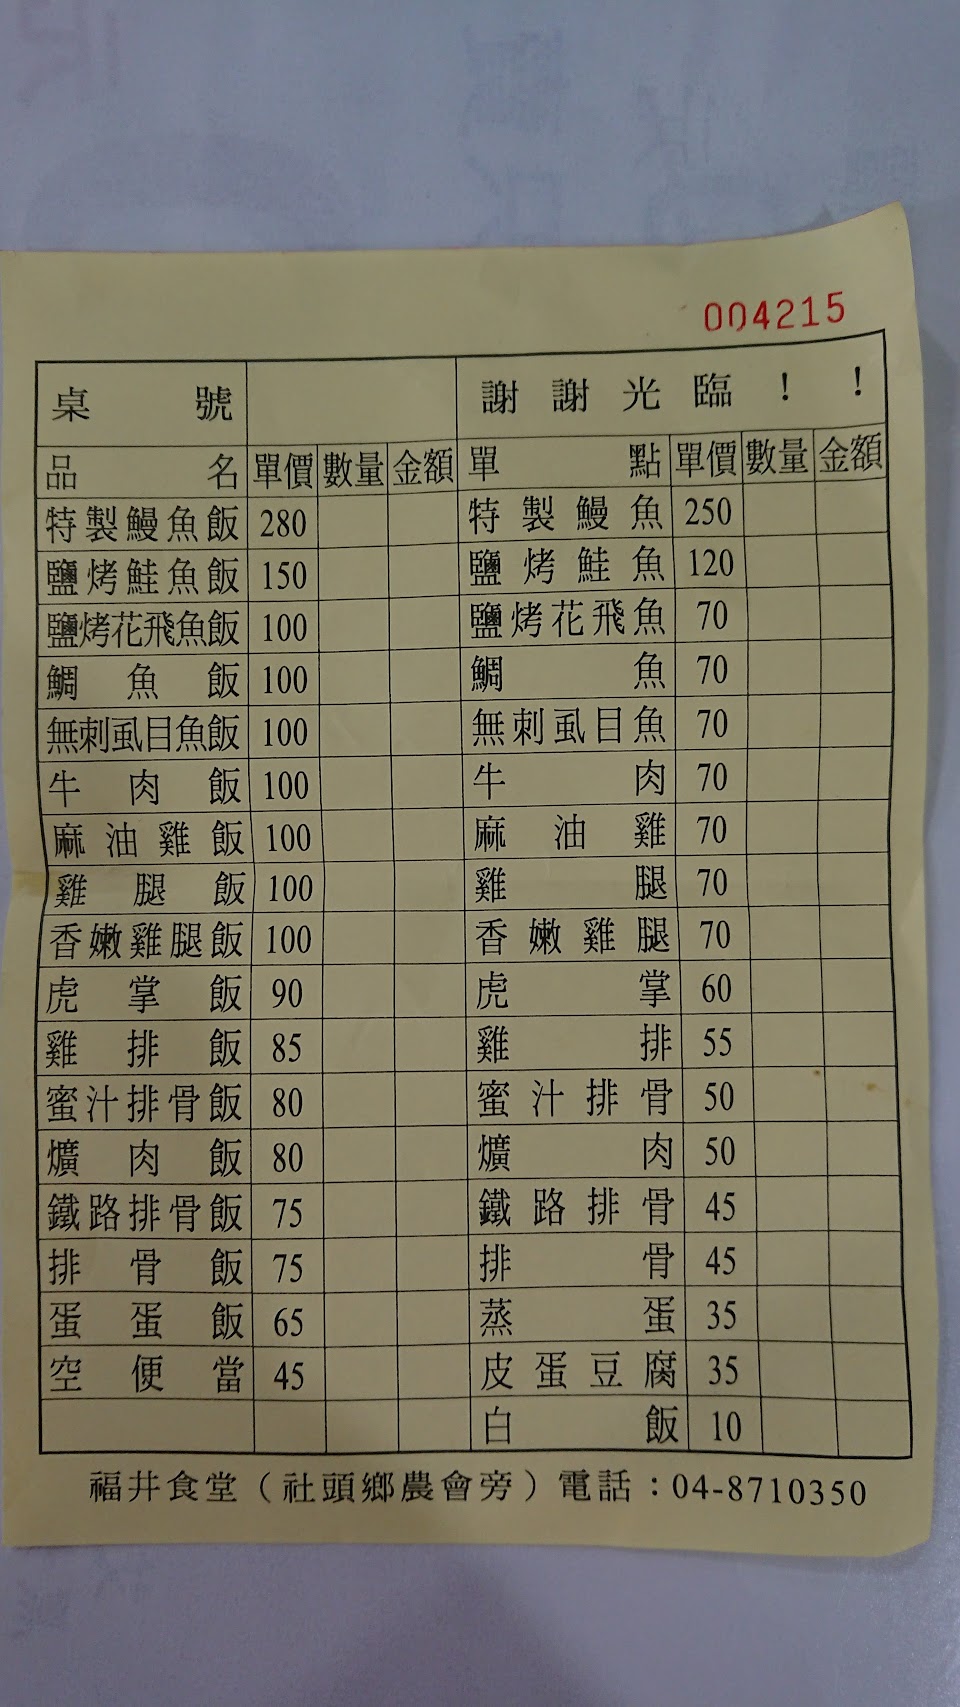 004215
桌號 謝謝光臨！！
品名 單價 數量 金額 單點 單價 數量 金額
特製鰻魚飯 280 特製鰻魚 250
鹽烤鮭魚飯 150 鹽烤鮭魚 120
鹽烤花飛魚飯 100 鹽烤花飛魚 70
鯛魚飯 100 鯛魚 70
無刺虱目魚飯 100 無刺虱目魚 70
牛肉飯 100 牛肉 70
麻油雞飯 100 麻油雞 70
雞腿飯 100 雞腿 70
香嫩雞腿飯 100 香嫩雞腿 70
虎掌飯 90 虎掌 60
雞排飯 85 雞排 55
蜜汁排骨飯 80 蜜汁排骨 50
爌肉飯 80 爌肉 50
鐵路排骨飯 75 鐵路排骨 45
排骨飯 75 排骨 45
蛋蛋飯 65 蒸蛋 35
空便當 45 皮蛋豆腐 35
白飯 10
福井食堂（社頭鄉農會旁）電話：04-8710350